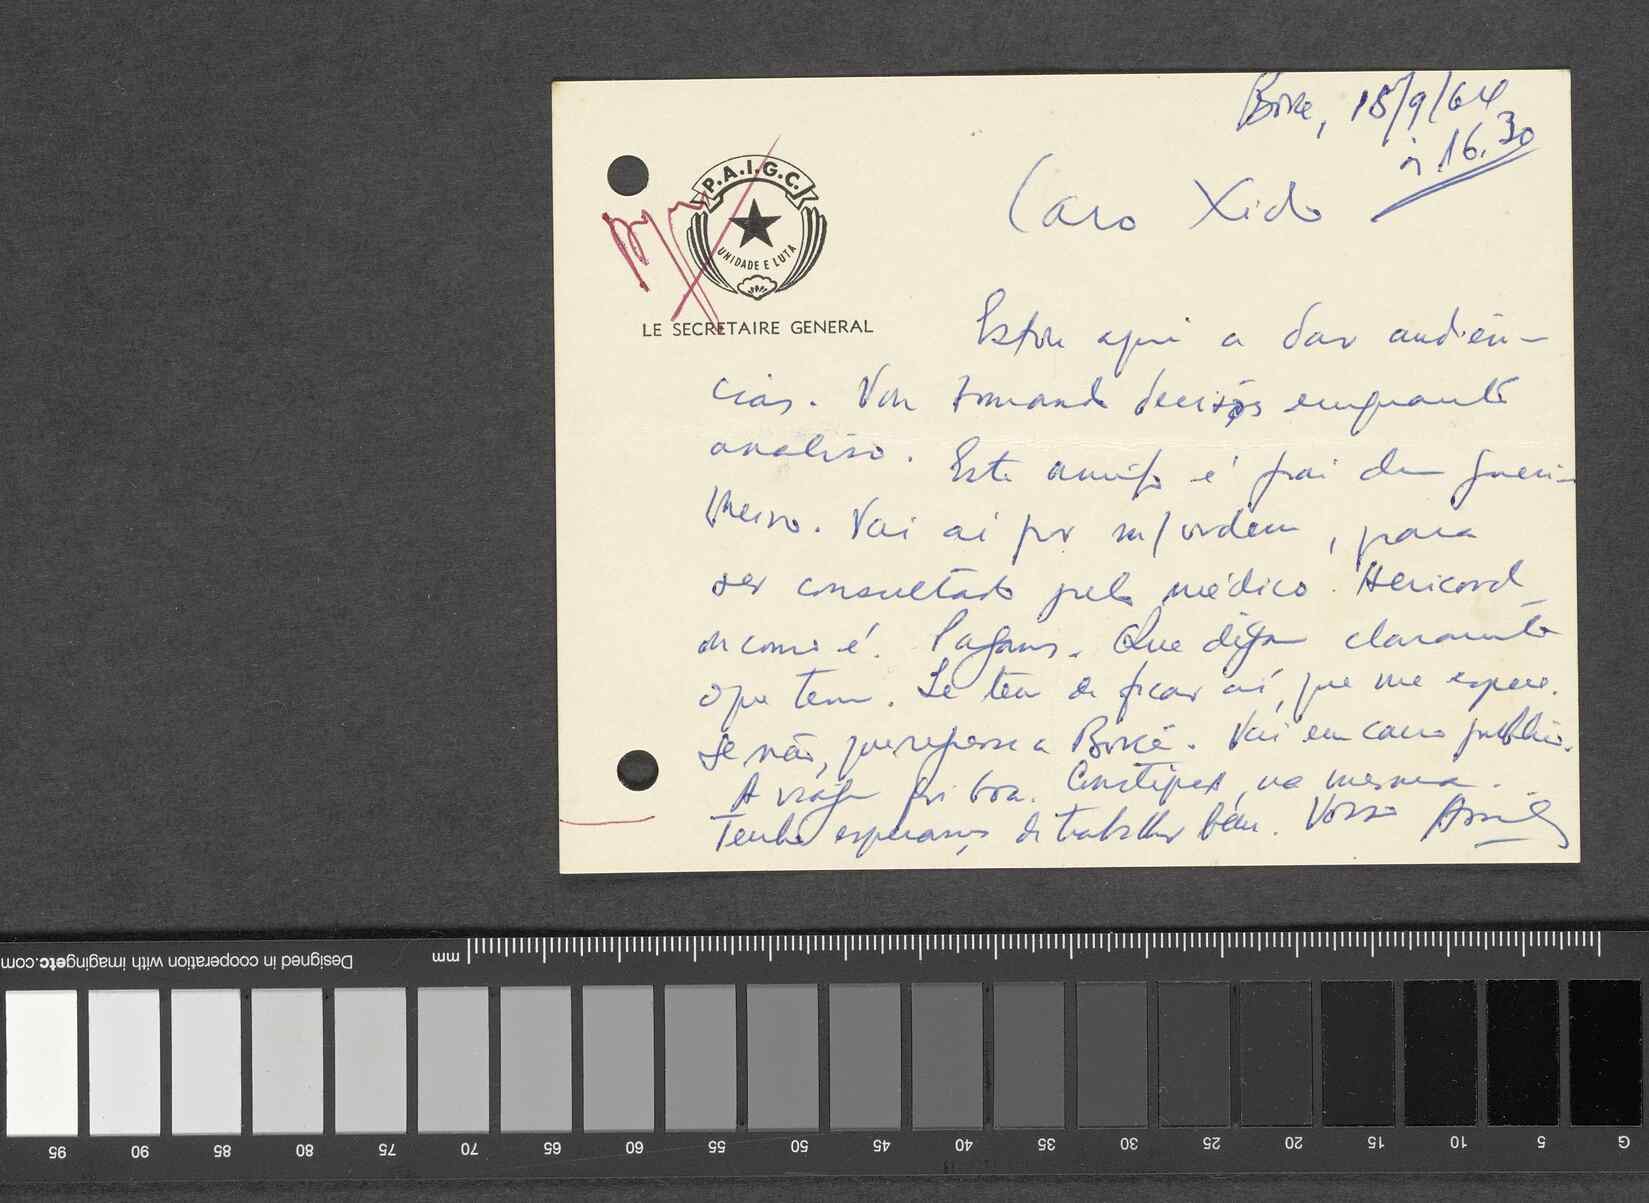 Boké, 18/9/64
à 16.30
P.A.I.G.C.
UNIDADE E LUTA
LE SECRETAIRE GENERAL
Caro Xido
Estou aqui a dar audiên-
cias. Vou tomando decisões enquanto
analiso. Este amigo é pai dum guerri-
lheiro. Vai aí por m/ordem, para
ser consultado pelo médico.
ou como é. Pagamos. Que digam claramente
o que tem. Se tem de ficar aí, que me espere.
Se não, que regresse a Boké. Vai em carro público.
A viagem foi boa. Constipado, na mesma.
Tenho esperanças de trabalhar bem. Vosso
Designed in cooperation with imagingetc.com
mm
95 90 85 80 75 70 65 60 55 50 45 40 35 30 25 20 15 10 5 G